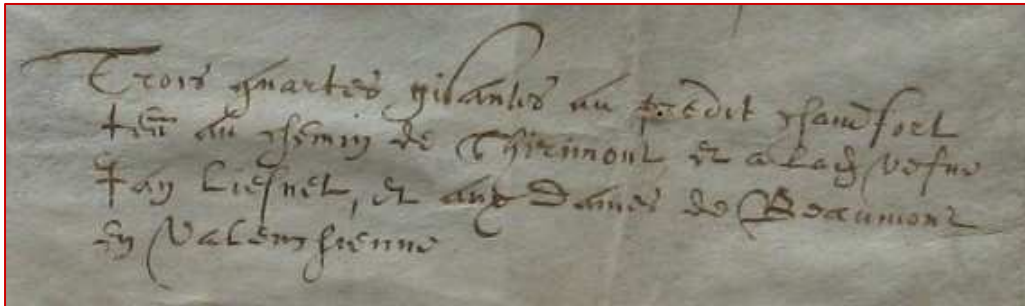 Trois quartes gisantes au predit chamfort
ten au chemin de Thirimont et a lad vefve
Jan Liesnet, et aux Dames de Beaumont
en Valenchienne